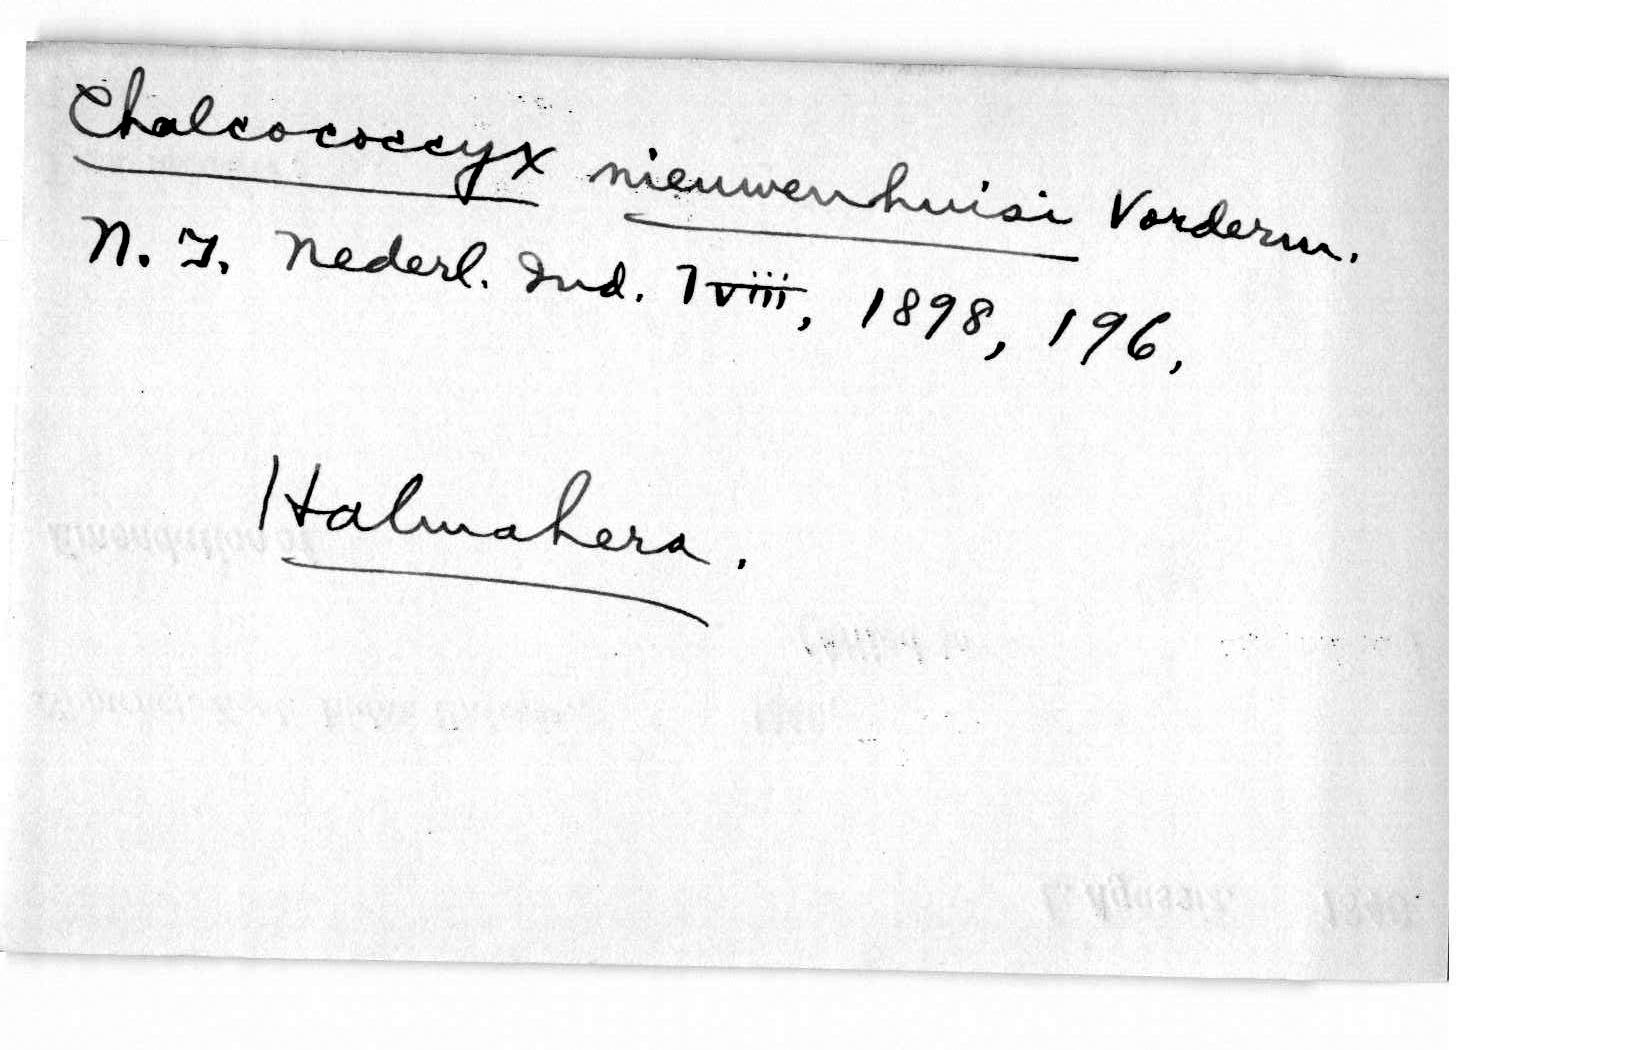 Chalcococcyx nieuwenhuisi Vorderm.
N. T. Nederl. Ind. lviii, 1898, 196,
Halmahera.